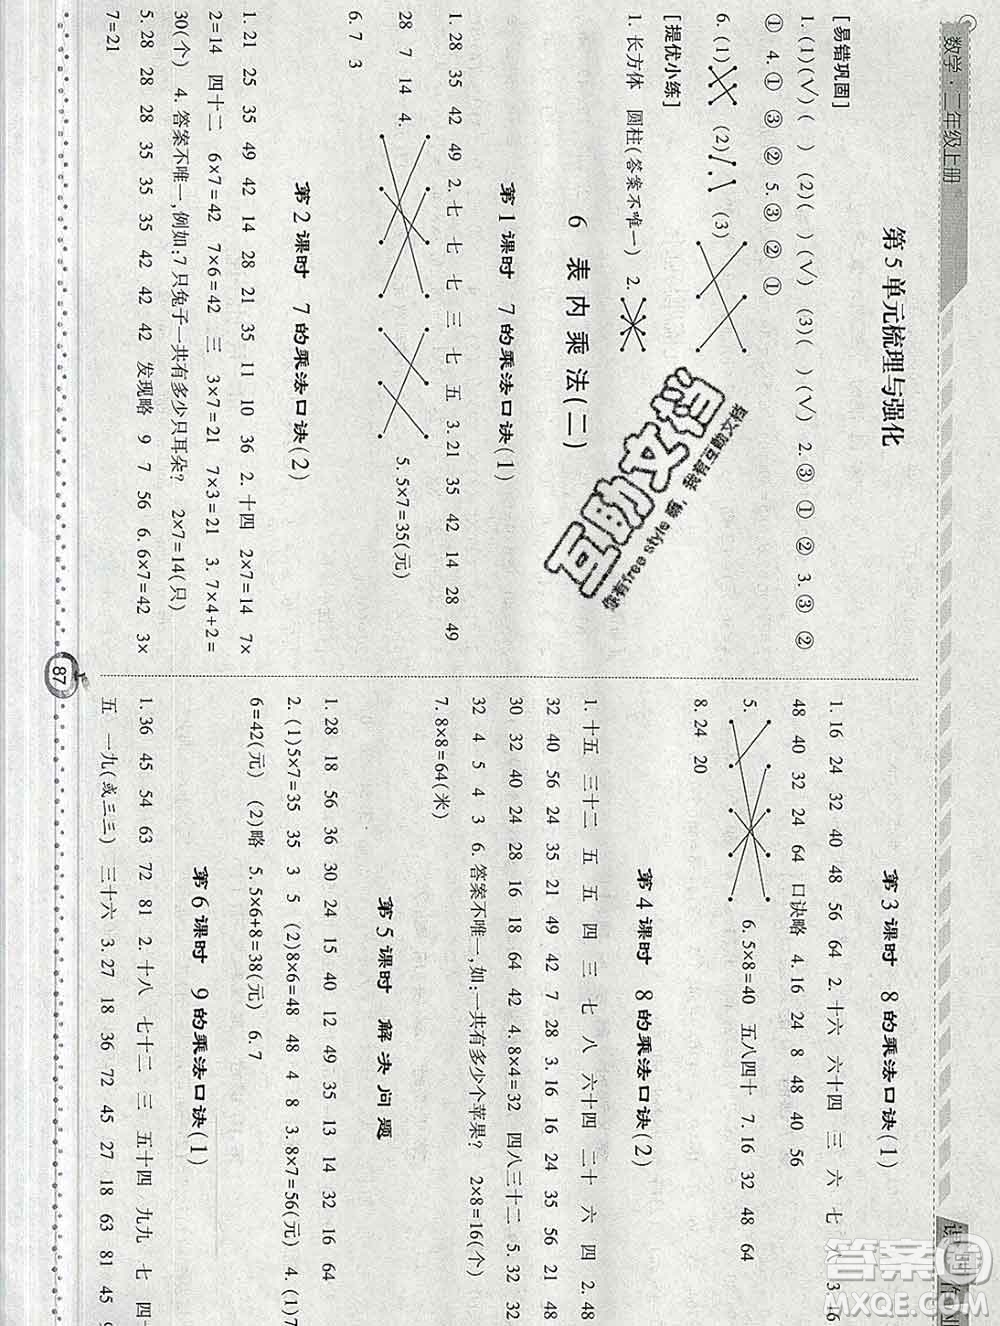 数学·二年级上册
第5单元梳理与强化
[易错巩固]
1. (1)(√) ( ) (2)( ) (√) (3)( ) (√) 2. ③ ① ② 3. ③ ②
① 4. ① ③ ② 5. ③ ② ①
6. (1) (2) (3)
[提优小练]
1. 长方体 圆柱(答案不唯一) 2.
6 表内乘法(二)
第1课时 7的乘法口诀(1)
1. 28 35 42 49 2. 七 七 七 三 七 五 3. 21 35 42 14 28 49
28 7 14 4. 5. 5×7=35(元)
6. 7 3
第2课时 7的乘法口诀(2)
1. 21 25 35 49 42 14 28 21 35 11 10 36 2. 十四 2×7=14 7×
2=14 四十二 6×7=42 7×6=42 三 3×7=21 7×3=21 3. 7×4+2=
30(个) 4. 答案不唯一,例如:7只兔子一共有多少只耳朵? 2×7=14(只)
5. 28 28 28 35 35 35 42 42 42 发现略 9 7 56 6. 6×7=42 3×
7=21
87
第3课时 8的乘法口诀(1)
1. 16 24 32 40 48 56 64 2. 十六 六十四 三 六 七 3. 16
48 40 32 24 64 口诀略 4. 16 24 8 48 40 56
5. 6. 5×8=40 五八四十 7. 16 32 48 64
8. 24 20
第4课时 8的乘法口诀(2)
1. 十五 三十二 五 五 四 三 七 八 六十四 二十 六 四 2. 48
32 40 56 24 35 21 49 42 3. 16 16 24 35 56 21
30 32 40 24 28 16 18 64 42 4. 8×4=32 四八三十二 5. 32
32 4 5 4 3 6. 答案不唯一,如:一共有多少个苹果? 2×8=16(个)
7. 8×8=64(米)
第5课时 解决问题
1. 28 18 56 36 30 24 15 40 12 49 35 13 14 32 16 64
2. (1)5×7=35 35 3 5 (2)8×6=48 48 4 8 3. 8×7=56(元) 4. (1)7
6=42(元) (2)略 5. 5×6+8=38(元) 6. 7
第6课时 9的乘法口诀(1)
1. 36 45 54 63 72 81 2. 十八 七十二 三 五十四 九 九 七 四
五 一 九(或三 三) 三十六 3. 27 18 36 72 45 27 18 63 81 45
互助文档
你有free style 嘛，我有互助文档
答案圈
MXQE.COM